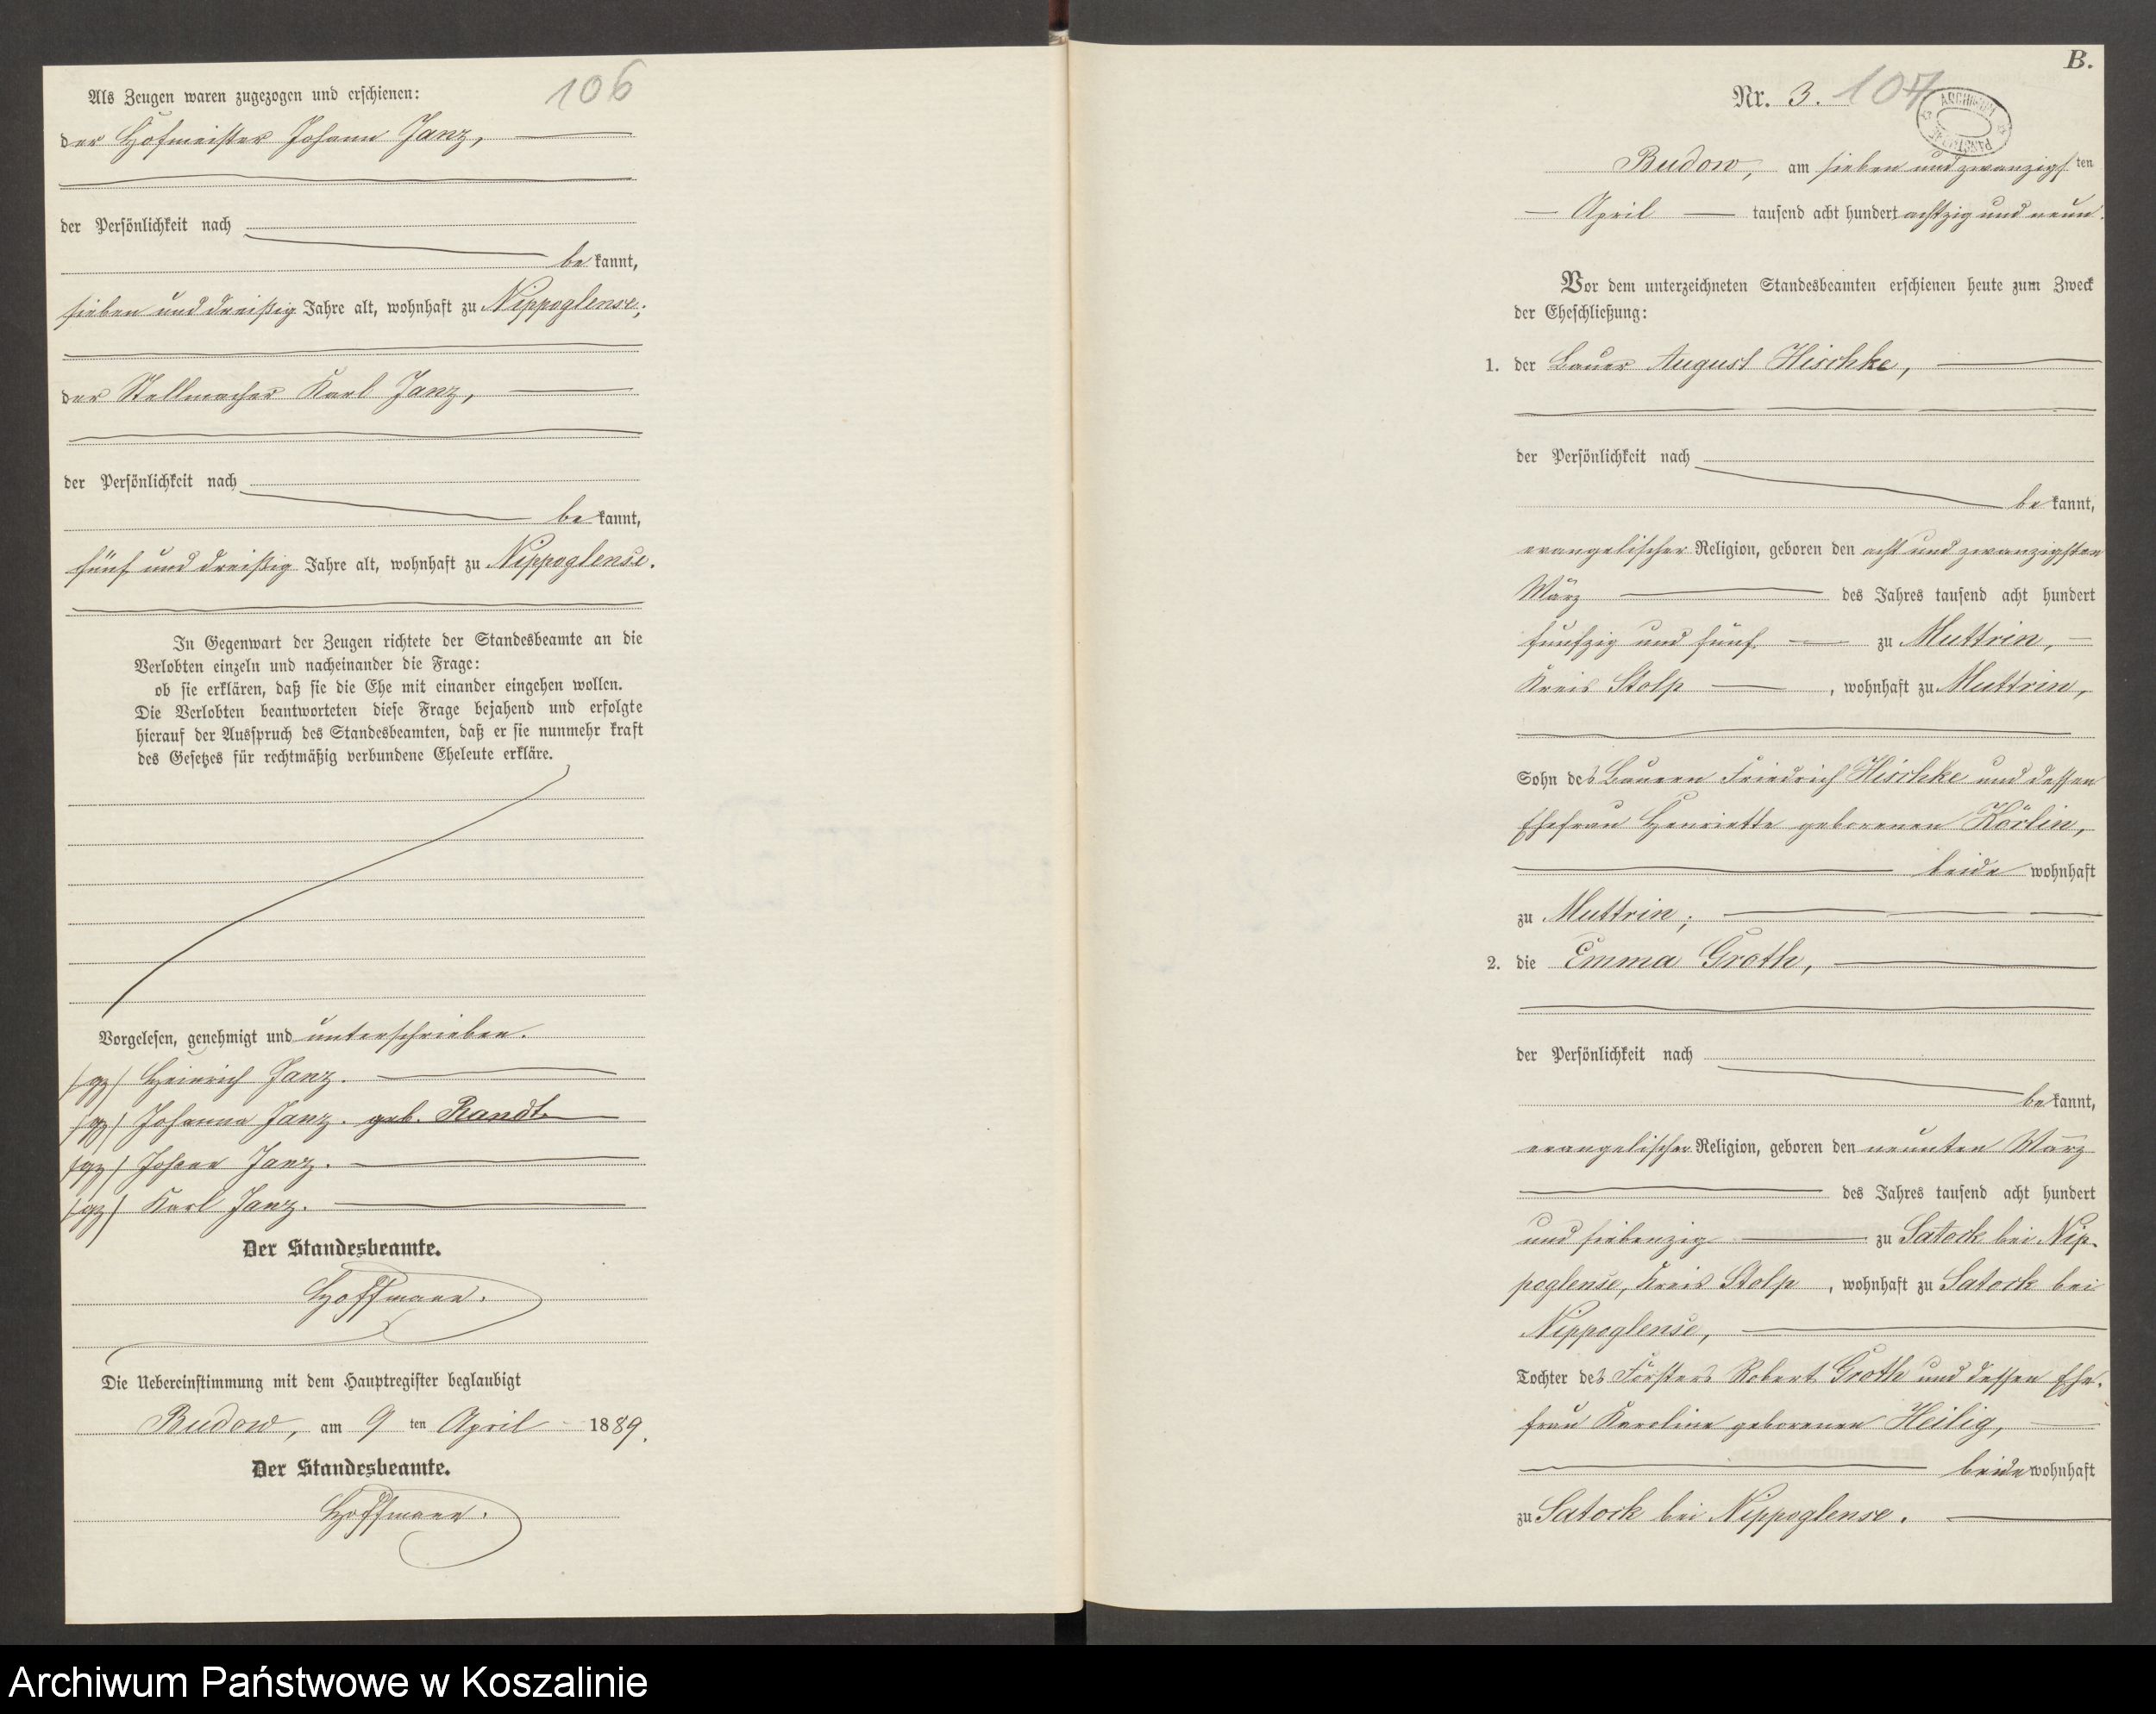 106
Als Zeugen waren zugezogen und erschienen:
der Hofmeister Johann Janz,
der Persönlichkeit nach
be kannt,
sieben und dreißig Jahre alt, wohnhaft zu Nippoglense;
der Stellmacher Karl Janz,
der Persönlichkeit nach
be kannt,
fünf und dreißig Jahre alt, wohnhaft zu Nippoglense.
In Gegenwart der Zeugen richtete der Standesbeamte an die
Verlobten einzeln und nacheinander die Frage:
ob sie erklären, daß sie die Ehe mit einander eingehen wollen.
Die Verlobten beantworteten diese Frage bejahend und erfolgte
hierauf der Ausspruch des Standesbeamten, daß er sie nunmehr kraft
des Gesetzes für rechtmäßig verbundene Eheleute erkläre.
Vorgelesen, genehmigt und unterschrieben.
/gz/ Heinrich Janz.
/gz/ Johanna Janz. geb. Randt.
/gz/ Johann Janz.
/gz/ Karl Janz.
Der Standesbeamte.
Hoffmann.
Die Uebereinstimmung mit dem Hauptregister beglaubigt
Budow, am 9 ten April 1889.
Der Standesbeamte.
Hoffmann.
B.
Nr. 3. 107
ARCHIWUM PAŃSTWOWE
Budow, am sieben und zwanzigsten
April tausend acht hundert achtzig und neun.
Vor dem unterzeichneten Standesbeamten erschienen heute zum Zweck
der Eheschließung:
1. der Bauer August Hischke,
der Persönlichkeit nach
be kannt,
evangelischer Religion, geboren den acht und zwanzigsten
März des Jahres tausend acht hundert
fünfzig und fünf zu Muttrin,
Kreis Stolp, wohnhaft zu Muttrin,
Sohn des Bauern Friedrich Hischke und dessen
Ehefrau Henriette geborenen Körlin,
beide wohnhaft
zu Muttrin;
2. die Emma Groth,
der Persönlichkeit nach
be kannt,
evangelischer Religion, geboren den neunten März
des Jahres tausend acht hundert
und siebenzig zu Satock bei Nip-
poglense, Kreis Stolp, wohnhaft zu Satock bei
Nippoglense,
Tochter des Försters Robert Groth und dessen Ehe-
frau Karoline geborenen Heilig,
beide wohnhaft
zu Satock bei Nippoglense.
Archiwum Państwowe w Koszalinie